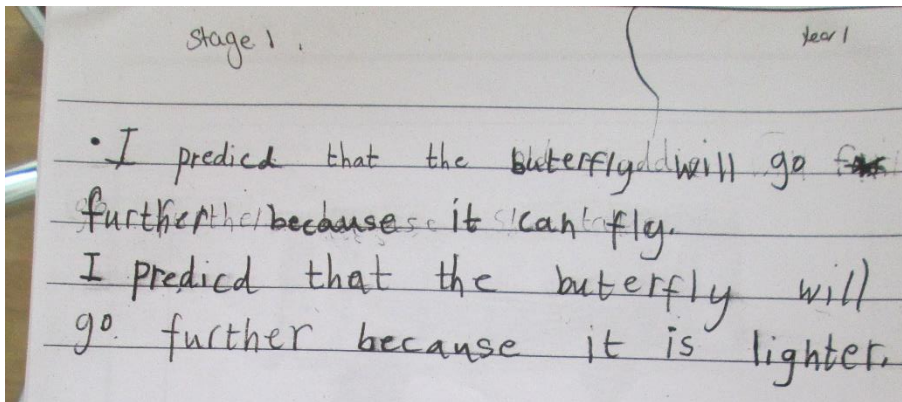 stage 1. year 1
• I predicd that the buterfly will go
further because it can fly.
I predicd that the buterfly will
go further because it is lighter.